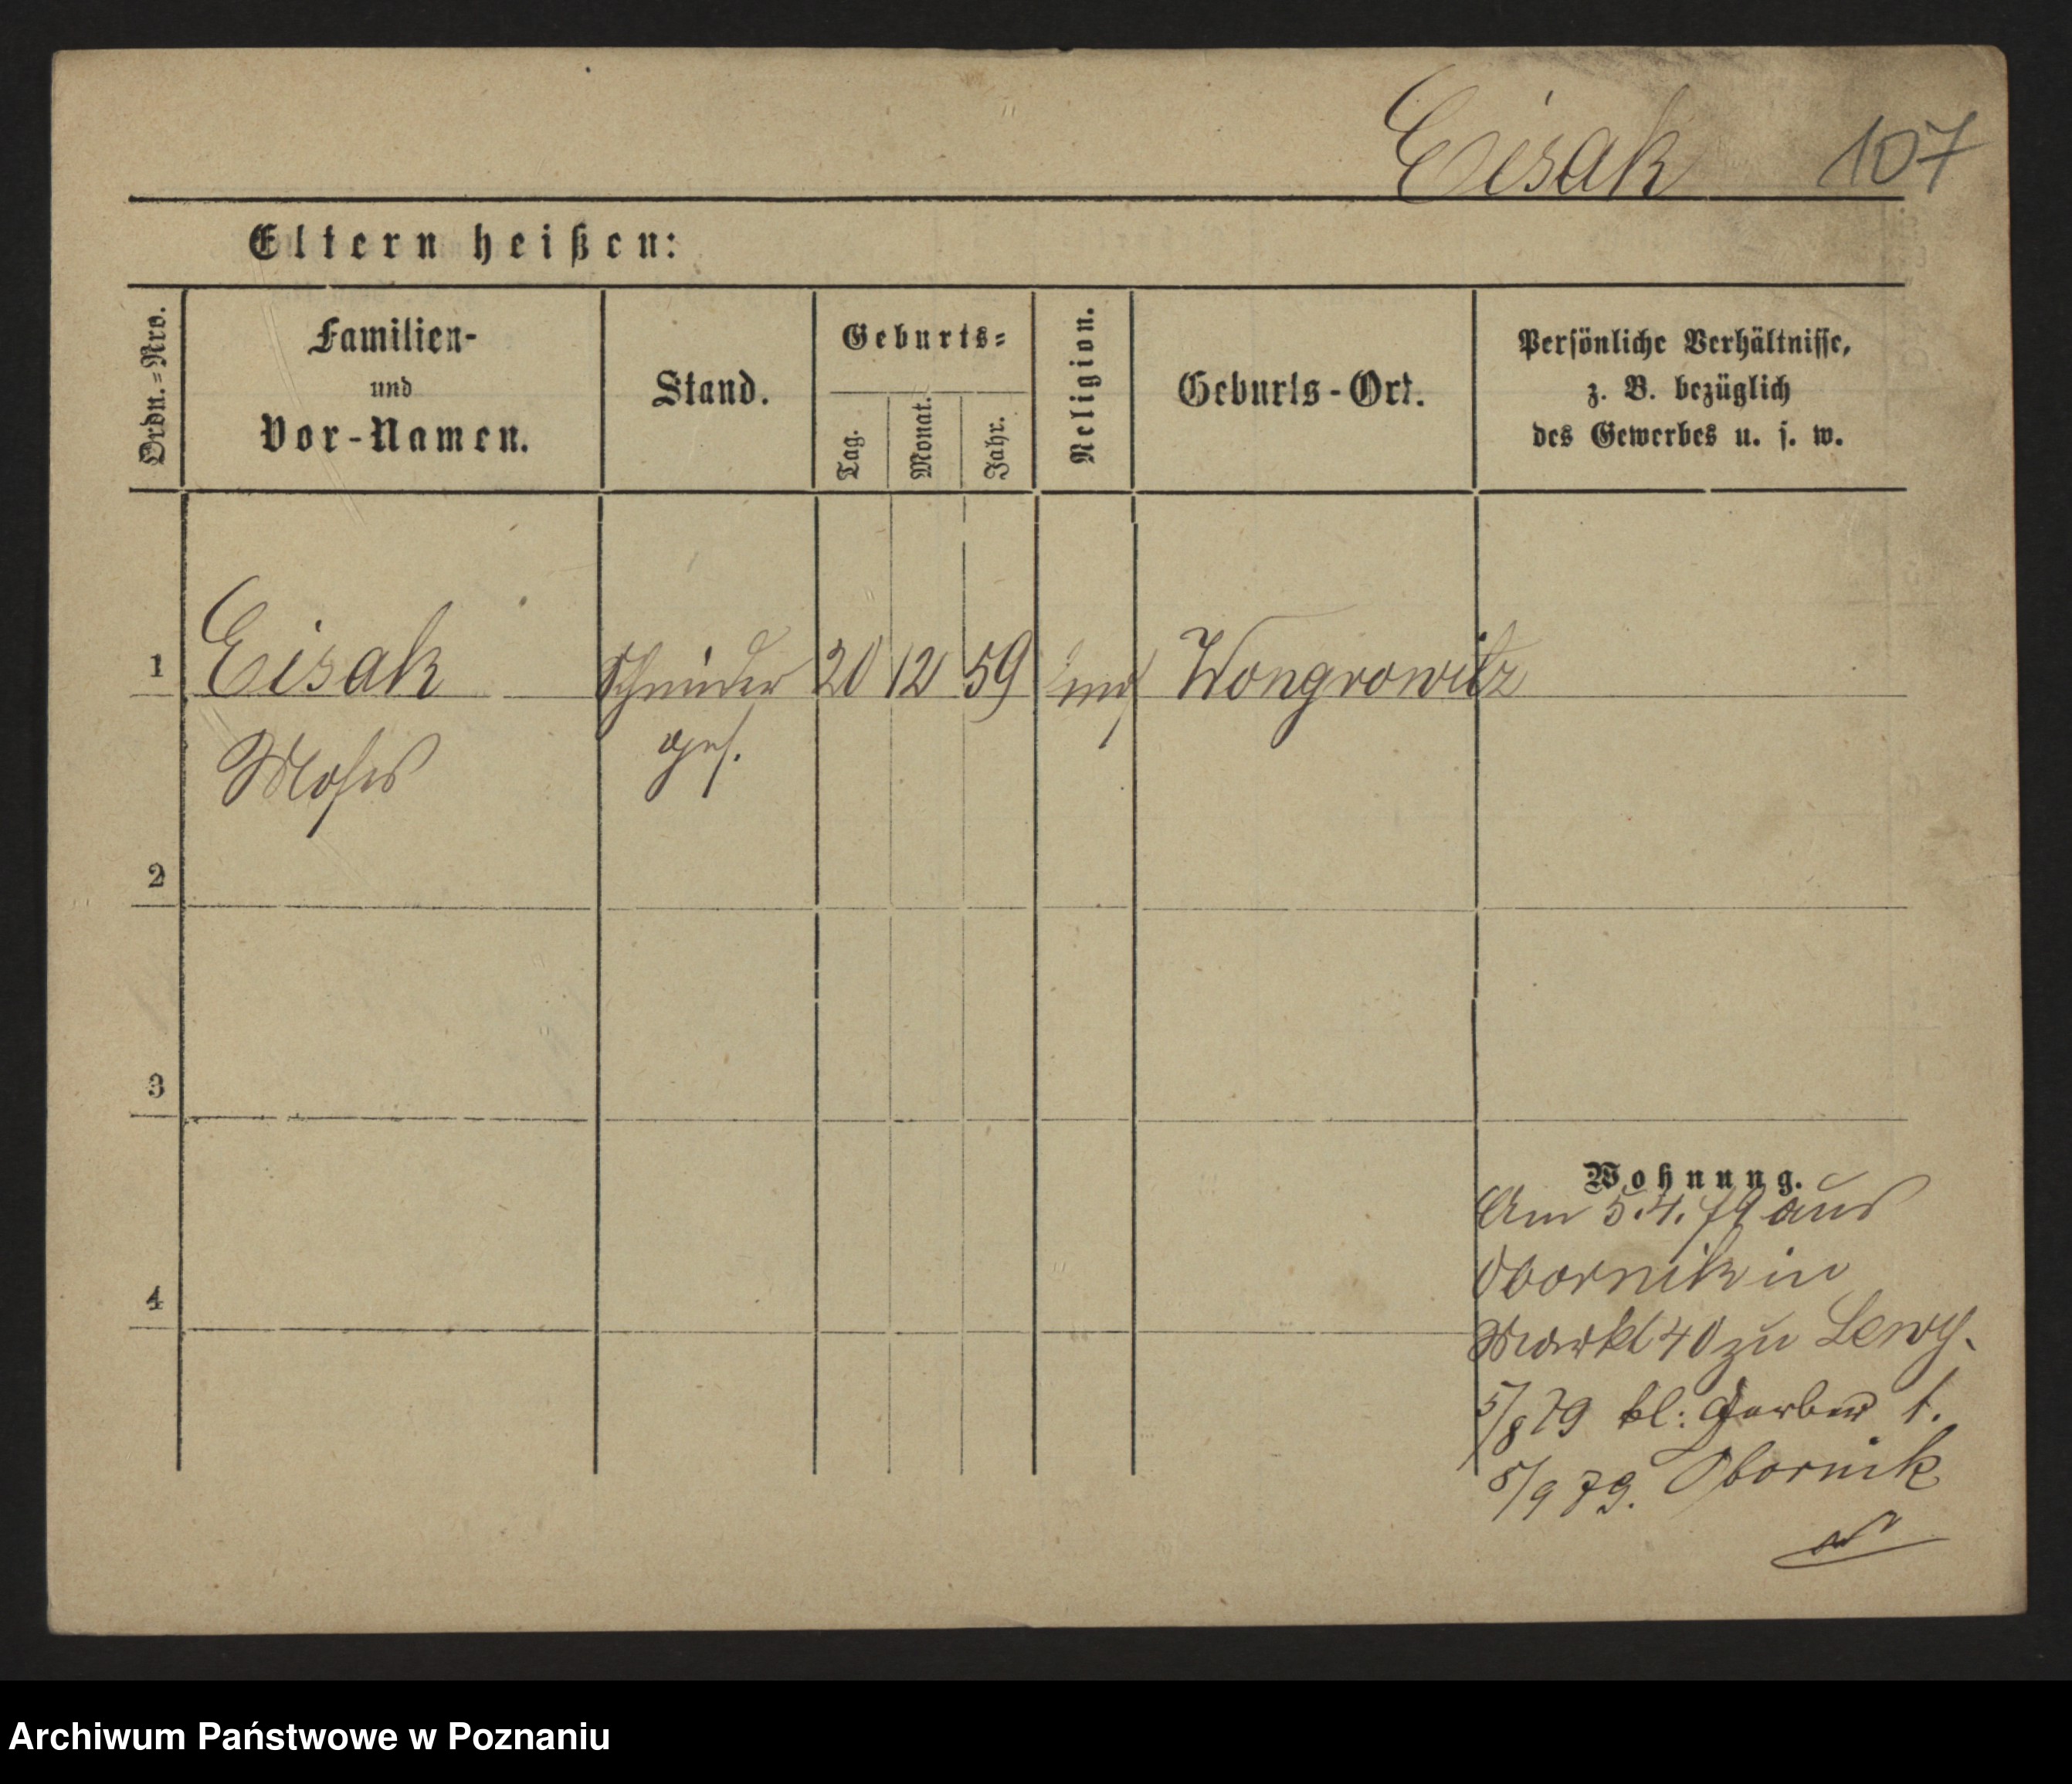 Eisak 107
Eltern heißen:
Ordn.=Nro.
Familien-
und
Vor-Namen.
Stand.
Geburts=
Tag.
Monat.
Jahr.
Religion.
Geburts-Ort.
Persönliche Verhältnisse,
z. B. bezüglich
des Gewerbes u. s. w.
1 Eisak Schneider 20 12 59 Wongrowitz
Moses ges.
2
3
4
Wohnung.
Am 5.4.79 aus
Obornik in
Markt 40 zu Lewy.
5/8 79 kl: Gerber 1.
5/9 79. Obornik
Archiwum Państwowe w Poznaniu